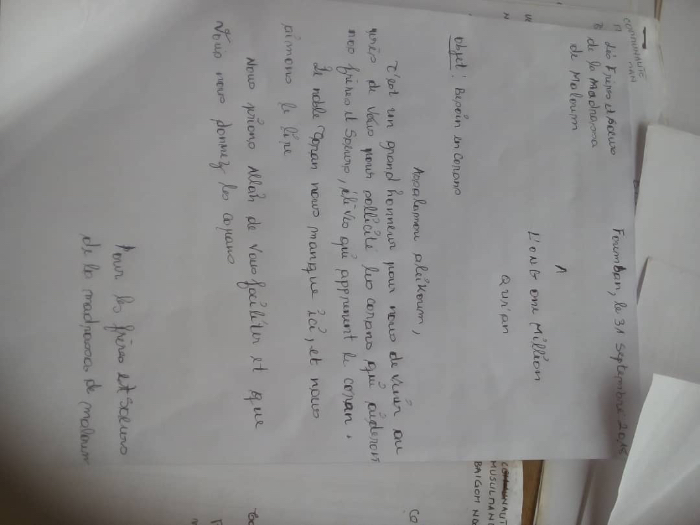 Foumban, le 31 septembre 2015
Les Frères et Soeurs
de la Madrassa
de Maloum
A
L'ONG One Million
Qur'an
Objet: Besoin en corans
Assalamou aleikoum,
C'est un grand honneur pour nous de venir au
près de vous pour sollicité les corans qui aideron
nos frères et soeurs, élèves qui apprenent le coran.
Le noble Coran nous manque ici, et nous
aimons le lire
Nous prions Allah de vous faciliter et que
vous nous donnez les corans
Pour les frères et soeurs
de la madrassa de maloum
COMMUNAUTÉ
MUSULMANE
BAIGOM